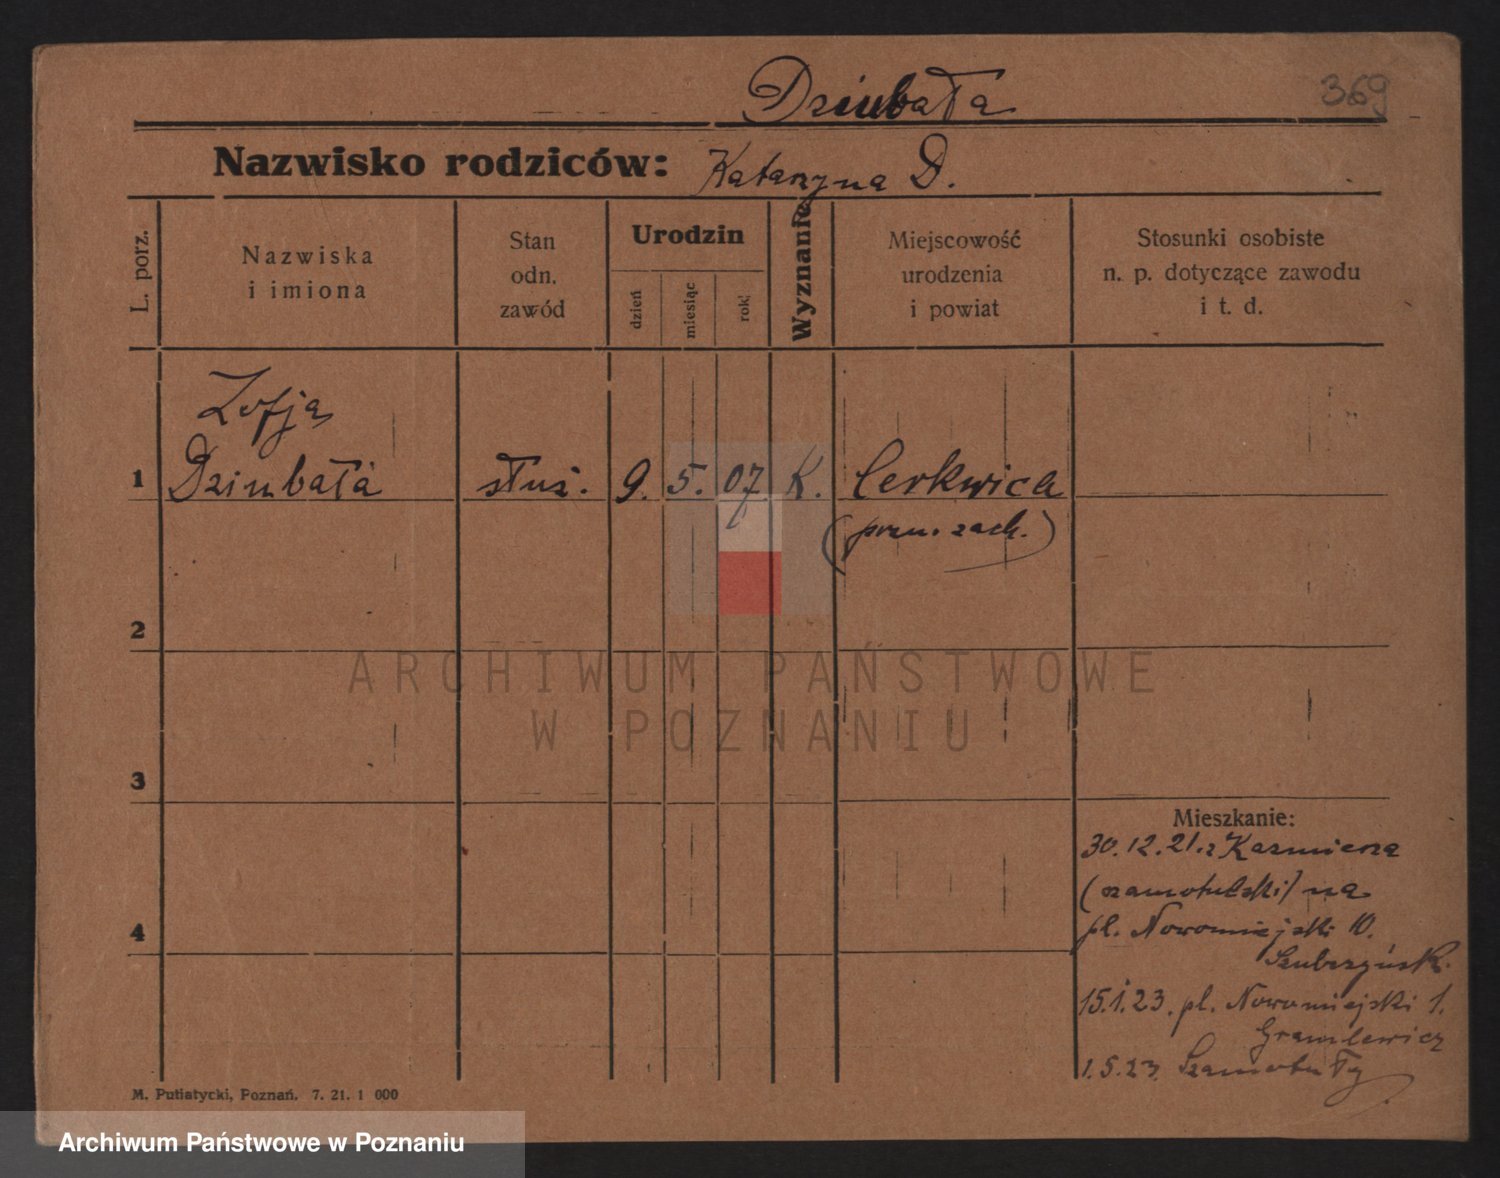 Dziubała 369
Nazwisko rodziców: Katarzyna D.
L. porz.
Nazwiska
i imiona
Stan
odn.
zawód
Urodzin
dzień
miesiąc
rok
Wyznanie
Miejscowość
urodzenia
i powiat
Stosunki osobiste
n. p. dotyczące zawodu
i t. d.
Zofja
1 Dziubała służ. 9. 5. 07 K. Cerkwica
2
3
4
Mieszkanie:
30.12.21. z Kazmierza
(szamotulski) na
pl. Nowomiejski 10.
15.1.23. pl. Nowomiejski 1.
1.5.23. Szamotuły
M. Putiatycki, Poznań. 7. 21. 1 000
ARCHIWUM PAŃSTWOWE
W POZNANIU
Archiwum Państwowe w Poznaniu